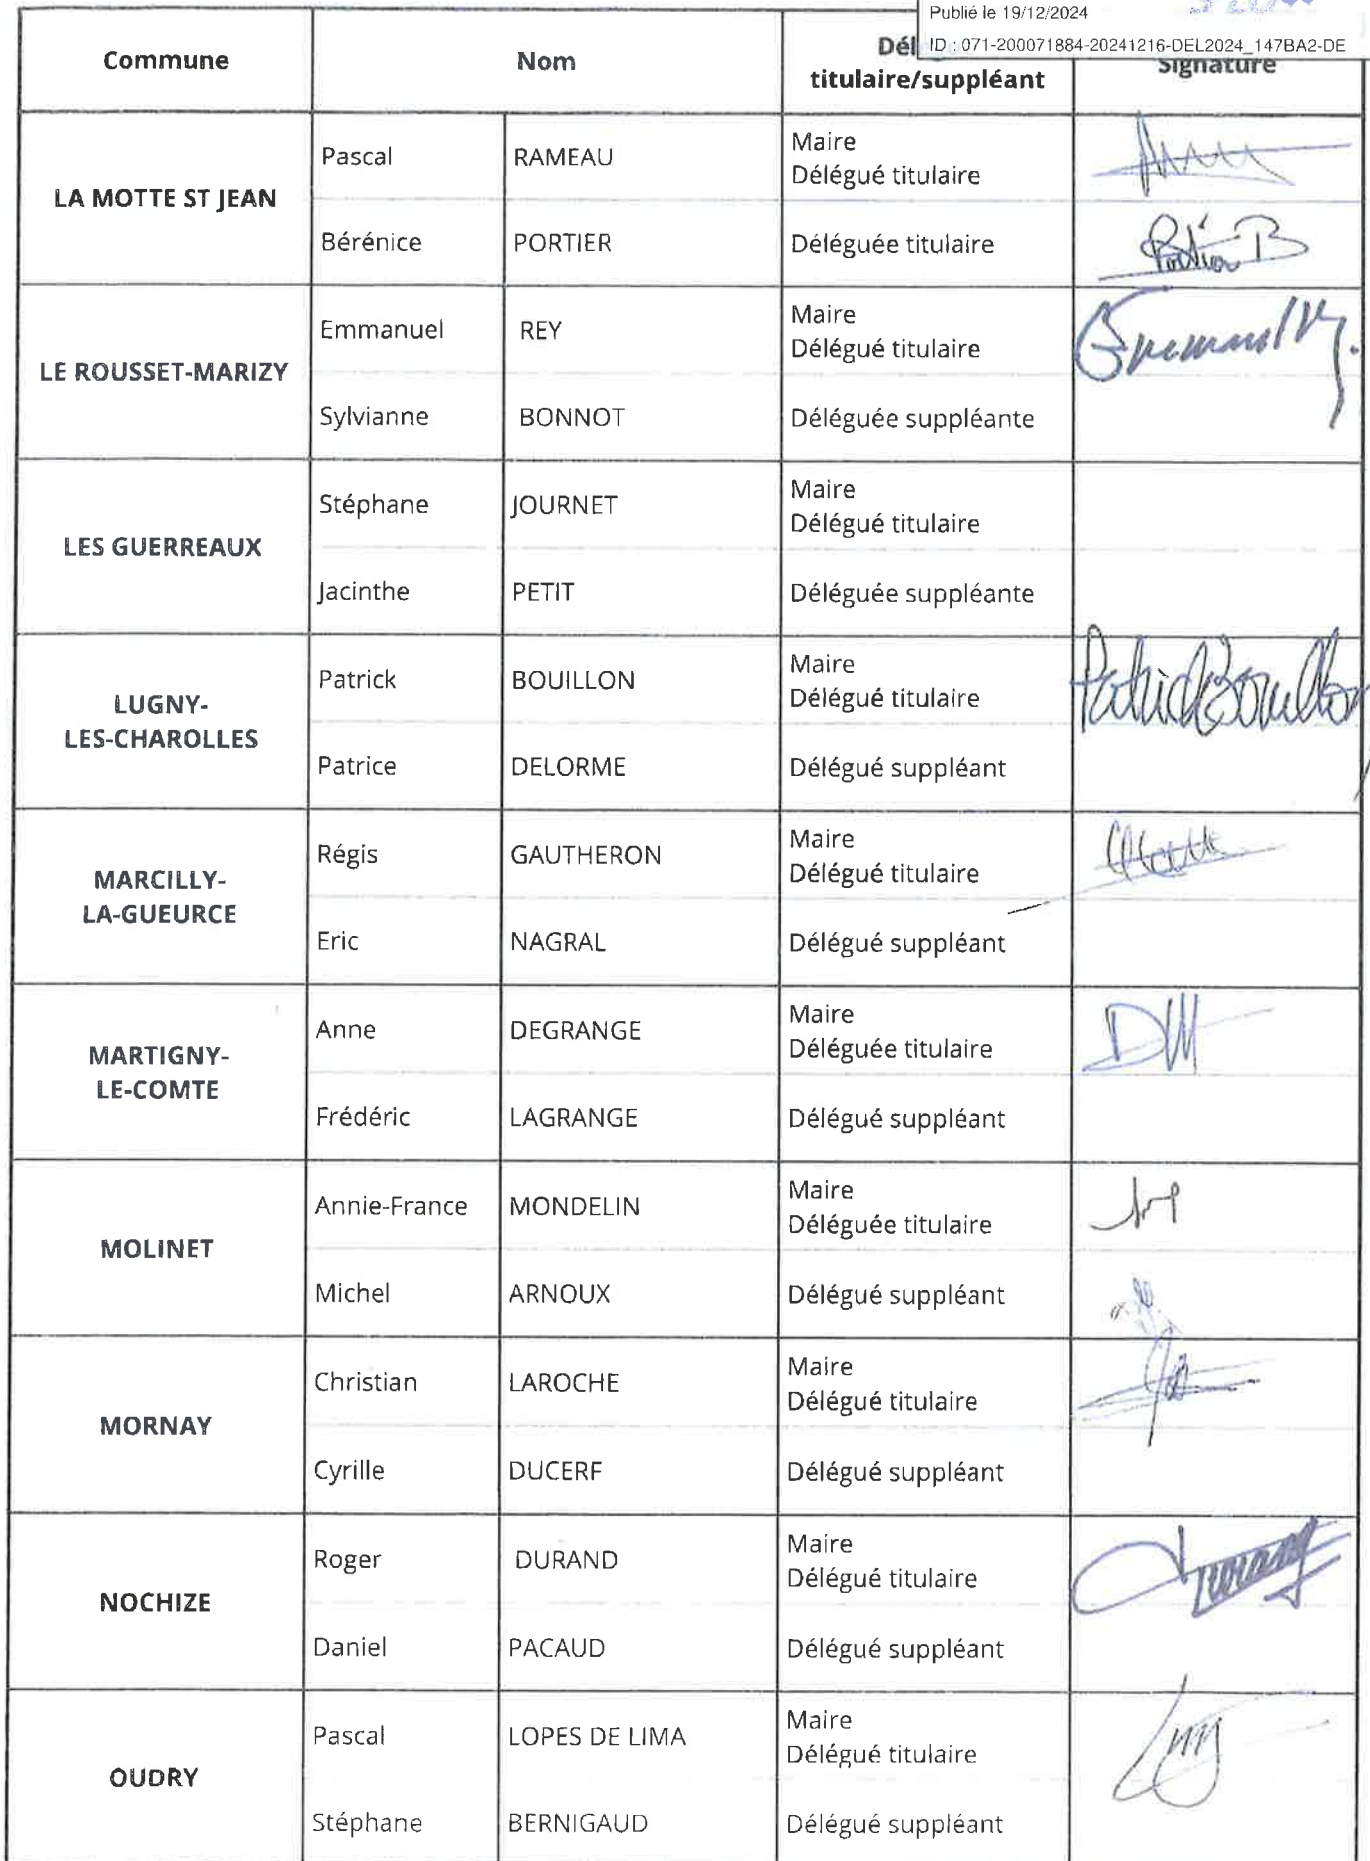 Publié le 19/12/2024
ID : 071-200071884-20241216-DEL2024_147BA2-DE
Commune
Nom
titulaire/suppléant
Signature
LA MOTTE ST JEAN
Pascal
RAMEAU
Maire
Délégué titulaire
Bérénice
PORTIER
Déléguée titulaire
Portier B
LE ROUSSET-MARIZY
Emmanuel
REY
Maire
Délégué titulaire
Sylvianne
BONNOT
Déléguée suppléante
LES GUERREAUX
Stéphane
JOURNET
Maire
Délégué titulaire
Jacinthe
PETIT
Déléguée suppléante
LUGNY-
LES-CHAROLLES
Patrick
BOUILLON
Maire
Délégué titulaire
Patrick Bouillon
Patrice
DELORME
Délégué suppléant
MARCILLY-
LA-GUEURCE
Régis
GAUTHERON
Maire
Délégué titulaire
Eric
NAGRAL
Délégué suppléant
MARTIGNY-
LE-COMTE
Anne
DEGRANGE
Maire
Déléguée titulaire
Frédéric
LAGRANGE
Délégué suppléant
MOLINET
Annie-France
MONDELIN
Maire
Déléguée titulaire
Michel
ARNOUX
Délégué suppléant
MORNAY
Christian
LAROCHE
Maire
Délégué titulaire
Cyrille
DUCERF
Délégué suppléant
NOCHIZE
Roger
DURAND
Maire
Délégué titulaire
Daniel
PACAUD
Délégué suppléant
OUDRY
Pascal
LOPES DE LIMA
Maire
Délégué titulaire
Stéphane
BERNIGAUD
Délégué suppléant